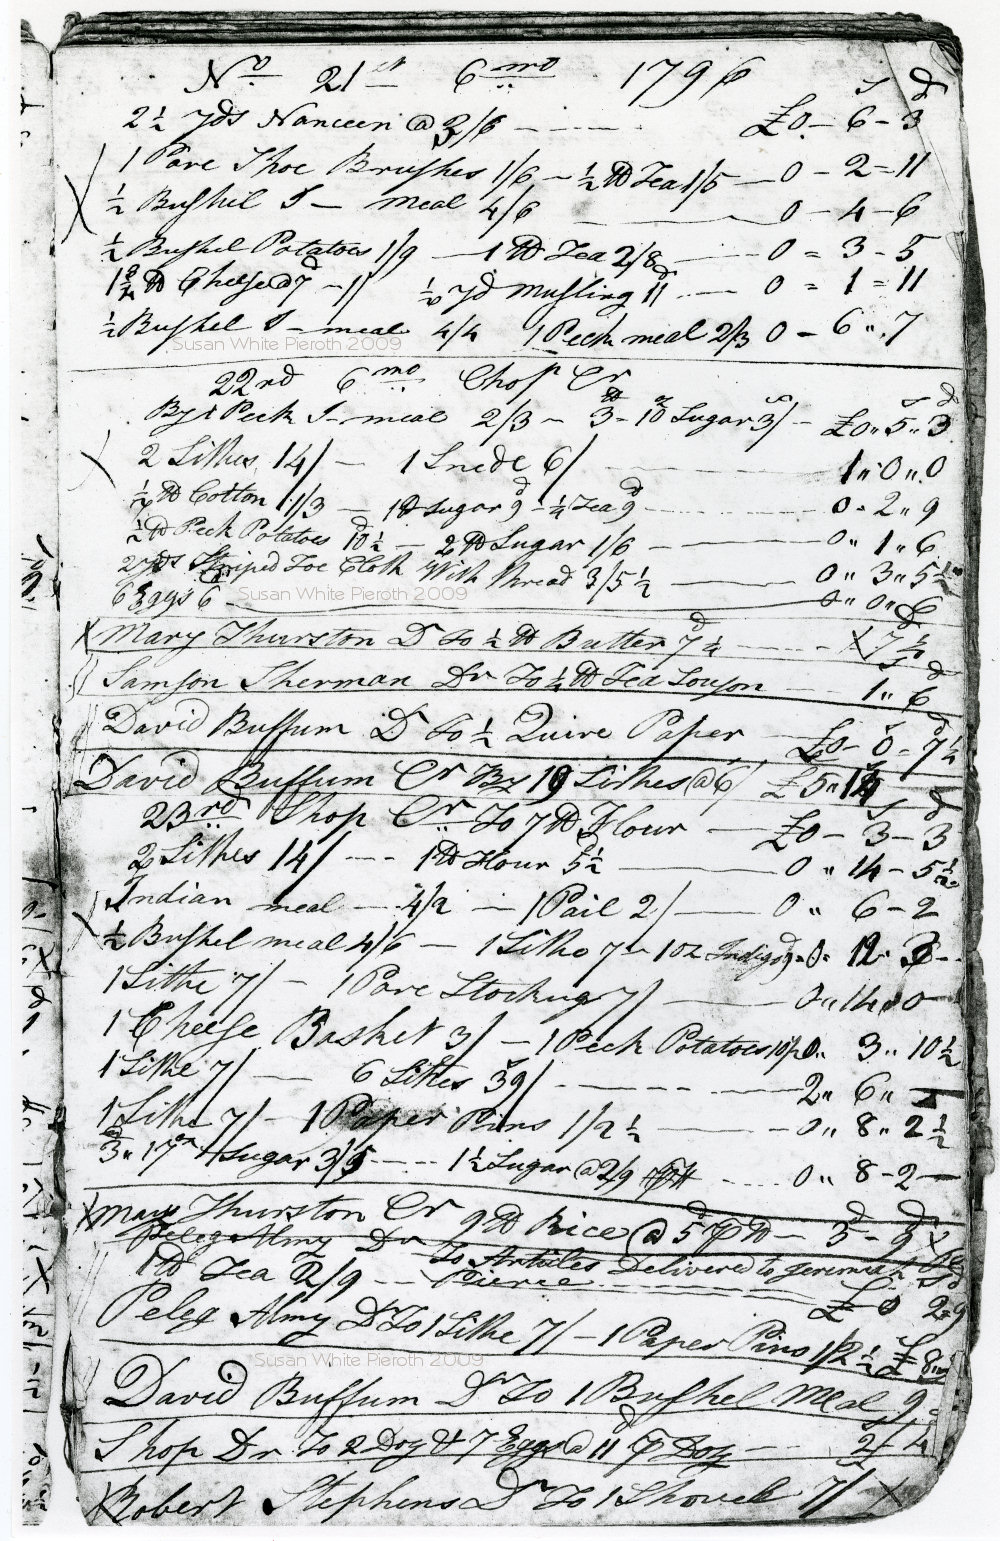 No 21st 6mo 1796
s d
2½ yds Nanceen @ 2/6 £0 - 6 - 3
1 Pare Shoe Brushes 1/6 - ½ ℔ Tea 1/5 - 0 - 2 = 11
½ Bushil I - meal 4/6 0 - 4 - 6
½ Bushel Potatoes 1/9 - 1 ℔ Tea 2/8 0 = 3 - 5
℔ Cheese @ 7d - 11 ½ yd Musling 11d 0 = 1 = 11
½ Bushel I - meal 4/4 1 Peck meal 2/3 0 - 6 " 7
Susan White Pieroth 2009
22nd 6mo Shop Cr
By 1 Peck I - meal 2/3 - 3℔ - 10oz Sugar 3/ - £0 " 5 " 3
2 Sithes 14/ - 1 Snede 6/ 1 " 0 " 0
½ ℔ Cotton 1/3 - 1 ℔ Sugar 9d - ¼ Tea 9d 0 - 2 " 9
Peck Potatoes 10½d - 2 ℔ Sugar 1/6 - 0 " 1 " 6
2 yds Striped Toe Cloth With thread 3/5½ 0 " 3 " 5½
6 Eggs 6d 0 " 0 " 6
Susan White Pieroth 2009
X Mary Thurston Dr to ½ ℔ Butter 7¼d X 7½
Samson Sherman Dr To ½ ℔ Tea 1 " 6
David Buffum Dr to ½ Quire Paper £0 - 0 - 7¼
David Buffum Cr By 19 Sithes @ 6/ £5 " 14
23rd Shop Cr To 7 ℔ Flour £0 - 3 - 3
2 Sithes 14/ --- 1 ℔ Flour 5½ 0 " 14 - 5½
Indian meal - 4/2 - 1 Pail 2/ 0 " 6 - 2
½ Bushel meal 4/6 - 1 Sithe 7 - 1 oz Indigo 9d - 0 " 12 - 3
1 Sithe 7/ - 1 Pare Stockings 7/ 0 " 14 " 0
1 Cheese Basket 3/ - 1 Peck Potatoes 10½ 0 " 3 " 10½
1 Sithe 7/ 6 Sithes 39/ 2 " 6 "
1 Sithe 7/ - 1 Paper Pins 1/2½ 0 " 8 " 2½
3 " 17 Sugar 3/5 - 1½ Sugar @ 2/9 0 " 8 - 2
X Mary Thurston Cr 9 ℔ Rice @ 5d ℔ - 3 - 9 X
Peleg Almy Dr To Articles Delivered to Jeremiah
1 ℔ Tea 2/9 -- Pierce £ 0 2 = 9
Peleg Almy Dr To 1 Sithe 7/ - 1 Paper Pins 1/2½ £ 8
Susan White Pieroth 2009
David Buffum Dr To 1 Bushel Meal 9
Shop Dr To 2 Doz & 7 Eggs @ 11d Doz 2/4
X Robert Stephens Dr To 1 Shovel 7/ X